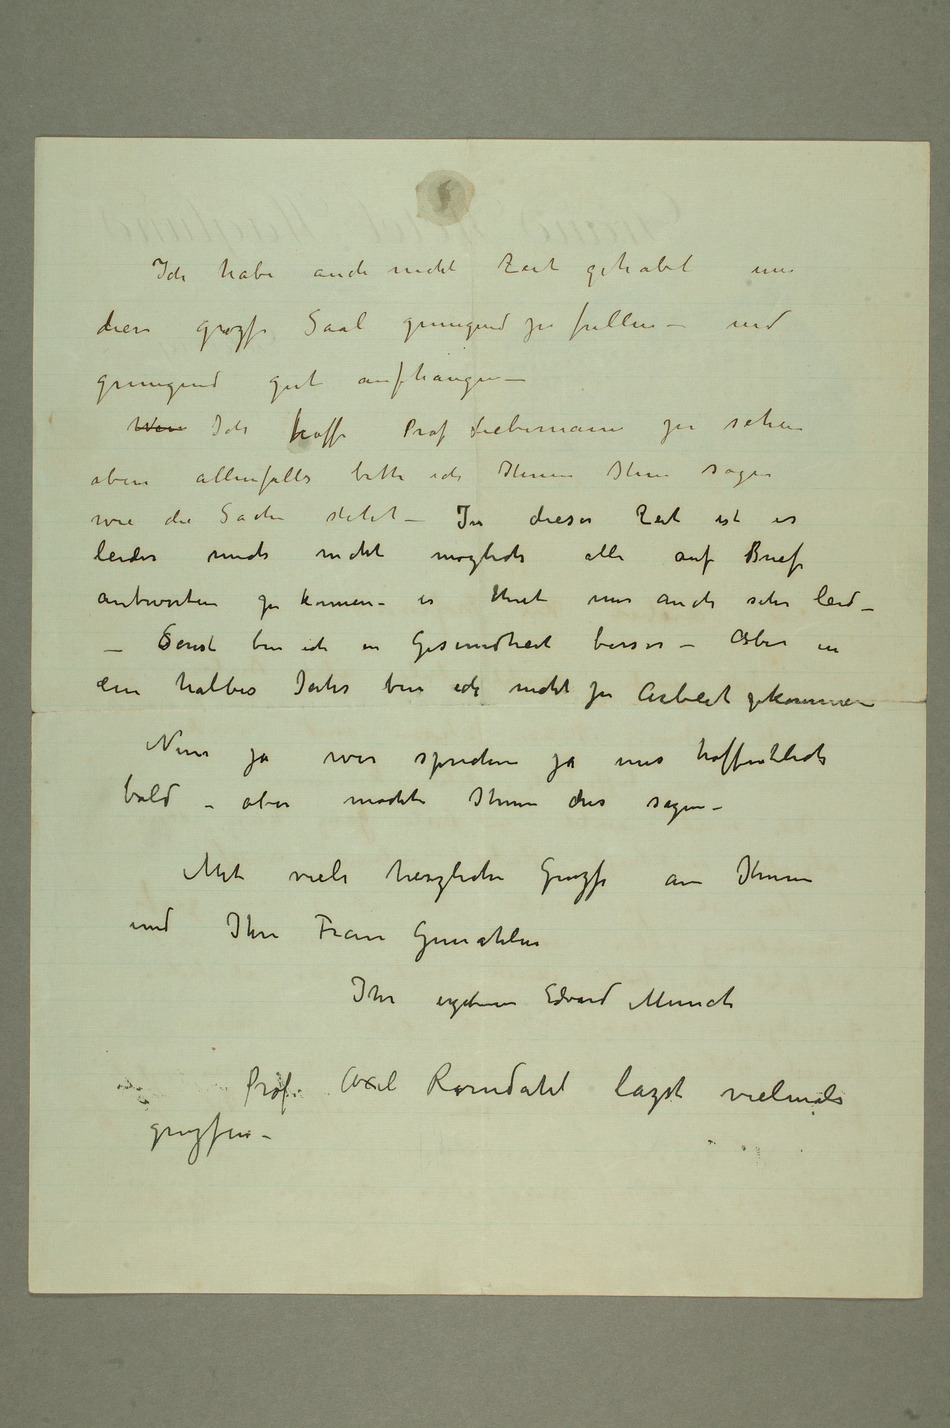 Ich habe auch nicht Zeit gehabt um
diese grozse Saal genugend zu fullen – und
genugend gut aufhangen –
Wen Ich hoffe Prof Liebermann zu sehen
aber allenfalls bitte ich Ihnen Ihm sagen
wie die Sache stehet – In dieser Zeit ist es
leider mich nicht moglich alle auf Briefe
antworten zu konnen – es thut mir auch sehr leid –
– Sonst bin ich in Gesundheit besser – Aber in
ein halbes Jahr bin ich nicht zu Arbeit gekommen
Nun ja wir sprechen ja uns hoffentlich
bald – aber mochte Ihnen dies sagen –
Mit viele herzliche Gruzse an Ihnen
und Ihre Frau Gemahlin
Ihr ergebener Edvard Munch
Prof. Axel Romdahl lazst vielmals
gruzsen –